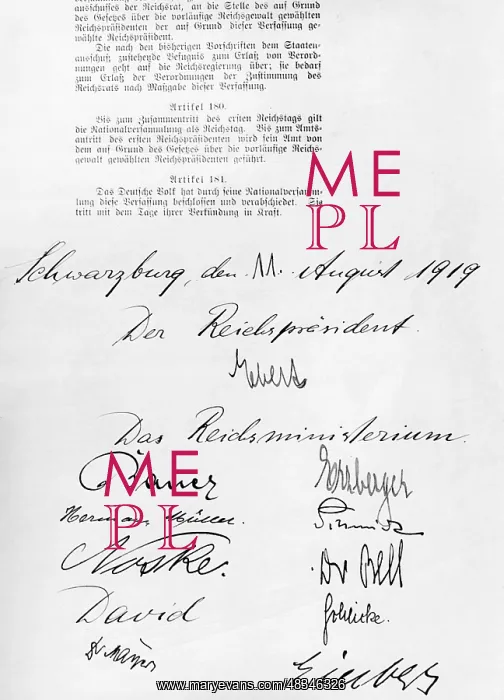 ausschusses der Reichsrat, an die Stelle des auf Grund
des Gesetzes über die vorläufige Reichsgewalt gewählten
Reichspräsidenten der auf Grund dieser Verfassung ge-
wählte Reichspräsident.
Die nach den bisherigen Vorschriften dem Staaten-
ausschuß zustehende Befugnis zum Erlaß von Verord-
nungen geht auf die Reichsregierung über; sie bedarf
zum Erlaß der Verordnungen der Zustimmung des
Reichsrats nach Maßgabe dieser Verfassung.
Artikel 180.
Bis zum Zusammentritt des ersten Reichstags gilt
die Nationalversammlung als Reichstag. Bis zum Amts-
antritt des ersten Reichspräsidenten wird sein Amt von
dem auf Grund des Gesetzes über die vorläufige Reichs-
gewalt gewählten Reichspräsidenten geführt.
Artikel 181.
Das Deutsche Volk hat durch seine Nationalversamm-
lung diese Verfassung beschlossen und verabschiedet. Sie
tritt mit dem Tage ihrer Verkündung in Kraft.
ME
PL
Schwarzburg, den 11. August 1919
Der Reichspräsident.
Ebert
Das Reichsministerium.
Bauer
Erzberger
Hermann Müller.
Schmidt
ME
PL
Noske.
Dr Bell
David
Dr Mayer
Giesberts
www.maryevans.com/48346326